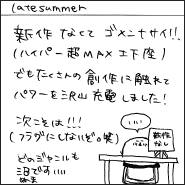 latesummer
新作なくてゴメンナサイ!!
(ハイパー超MAX土下座)
でもたくさんの創作に触れて
パワーを沢山充電しました!
次こそは!!!
(フラグにしないぞの笑)
どのジャンルも
ヨ日です!!!
新作
なし